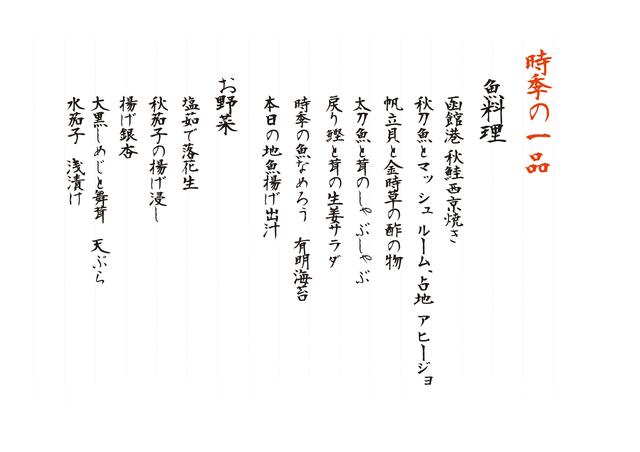 時季の一品
魚料理
函館港 秋鮭西京焼き
秋刀魚とマッシュルーム、占地 アヒージョ
帆立貝と金時草の酢の物
太刀魚と茸のしゃぶしゃぶ
戻り鰹と茸の生姜サラダ
時季の魚なめろう 有明海苔
本日の地魚揚げ出汁
お野菜
塩茹で落花生
秋茄子の揚げ浸し
揚げ銀杏
大黒しめじと舞茸 天ぷら
水茄子 浅漬け